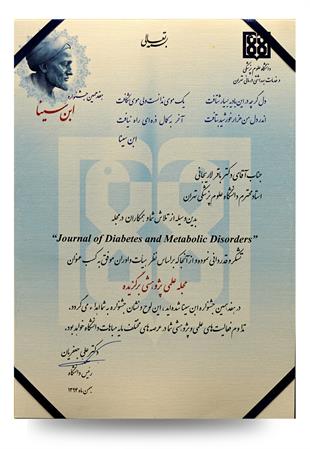 بسمه تعالی
دانشگاه علوم پزشکی
و خدمات بهداشتی درمانی تهران
هفدهمین جشنواره
ابن سینا
دل گرچه در این بادیه بسیار شتافت
یک موی ندانست ولی موی شکافت
اندر دل من هزار خورشید بتافت
آخر به کمال ذره‌ای راه نیافت
ابن سینا
جناب آقای دکتر باقر لاریجانی
استاد محترم دانشگاه علوم پزشکی تهران
بدین وسیله از تلاش شما و همکاران در مجله
“Journal of Diabetes and Metabolic Disorders”
تشکر و قدردانی نموده و از آنجا که بر اساس نظر هیات داوران موفق به کسب عنوان
مجله علمی پژوهشی برگزیده
در هفدهمین جشنواره ابن سینا شده‌اید، این لوح و نشان جشنواره به شما اهداء می گردد.
تداوم فعالیت‌های علمی و پژوهشی شما در عرصه‌های مختلف مایه مباهات دانشگاه خواهد بود.
دکتر علی جعفریان
رئیس دانشگاه
بهمن ماه ۱۳۹۴